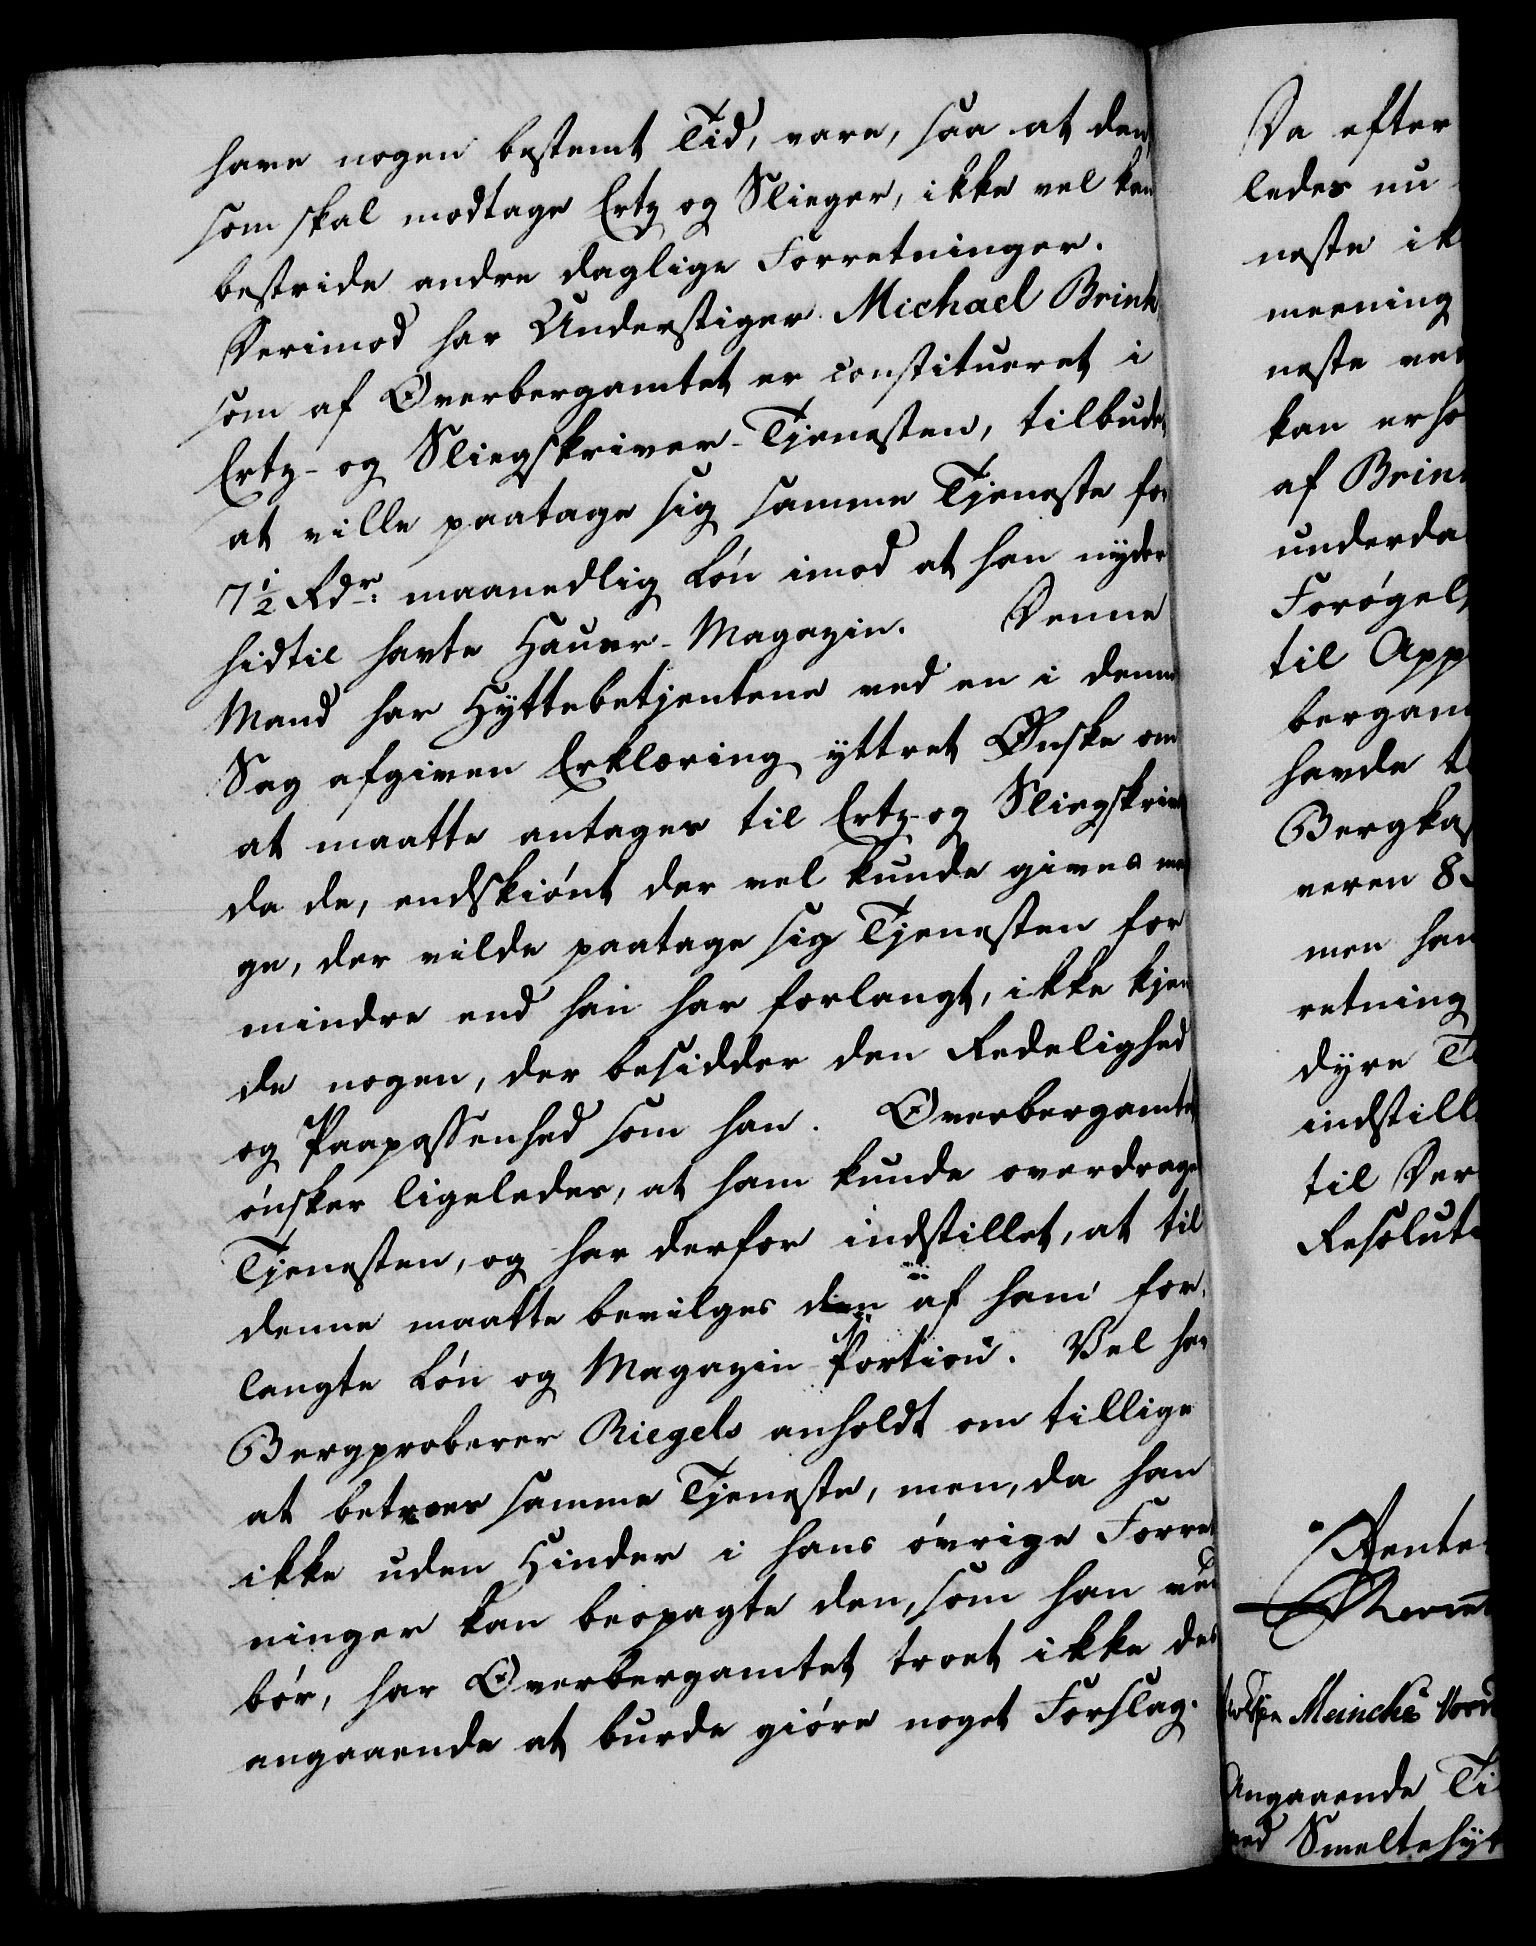 have nogen bestemt Tid, vare, saa at den,
som skal modtage Ertz og Slieger, ikke vel kan
bestride andre daglige Forretninger.
Derimod har Understiger Michael Brink
som af Overbergamtet er constitueret i
Ertz- og Sliegskriver-Tjenesten, tilbudet
at ville paatage sig samme Tjeneste for
7½ Rdr. maanedlig Løn imod at han nyder
hidtil havte Hauer-Magazin. Denne
Mand har Hyttebetjentene ved en i denne
Sag afgiven Erklæring yttret Ønske om
at maatte antages til Ertz- og Sliegskriver
da de, endskiønt der vel kunde gives man
ge, der vilde paatage sig Tjenesten for
mindre end han har forlangt, ikke kjen
de nogen, der besidder den Redelighed
og Paapassenhed som han. Overbergamtet
ønsker ligeledes, at ham kunde overdrages
Tjenesten, og har derfor indstillet, at til
denne maatte bevilges den af ham for-
langte Løn og Magazin-Portion. Vel har
Bergproberer Riegels anholdt om tillige
at betroes samme Tjeneste, men, da han
ikke uden Hinder i hans øvrige Forret
ninger kan beopagte den, som han ved
bør, har Overbergamtet troet ikke des
angaaende at burde giøre noget Forslag.
Da efter
ledes nu
neste ik
meening
neste ved
kan erho
af Brink
underda
Forøgels
til App
bergam
havde t
Bergkas
veren 8
men han
retning
dyre T
indstill
til Der
Resoluti
Rente
Meinche Nord
Angaaende Ti
ved Smeltehyt